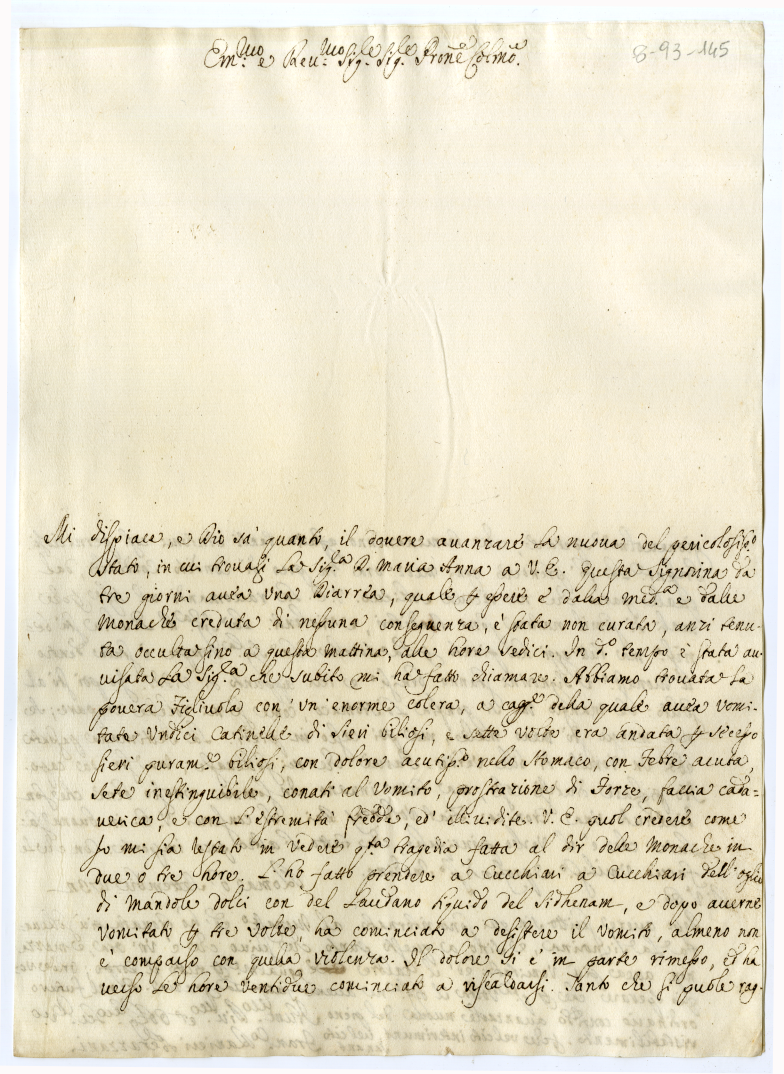 Em:mo e Reu:mo Sig.le Sig.le Prone Colmo.
8-93-145
Mi dispiace, e Dio sà quanto, il douere auanzare la nuoua del pericolosiss.o
stato, in cui trouasi la Sig.ra D. Maria Anna a V. E. Questa Signorina da
tre giorni auea una Diarrea, quale p essere è dalla med.ma e dalle
Monache creduta di nessuna conseguenza, è stata non curata, anzi tenu-
ta occulta sino a questa mattina, alle hore sedici. In d.o tempo è stata au-
uisata la Sig.ra che subito mi ha fatto chiamare. Abbiamo trouata la
pouera Figliuola con un' enorme colera, a cag.e della quale auea vomi-
tate undici Catinelle di sieri biliosi, e sette volte era andata p secesso
sieri puram.te biliosi, con dolore acutiss.o nello stomaco, con febre acuta,
sete inestinguibile, conati al vomito, prostrazione di forze, faccia cada-
uerica, e con l'estremità fredde, ed' illiuidite. V. E. puol credere come
Io mi sia restato in vedere q.ta tragedia fatta al dir delle Monache in
due o tre hore. L'ho fatto prendere a Cucchiari a Cucchiari dell'oglio
di Mandole dolci con del Laudano liquido del Sidhenam, e dopo auerne
vomitato p tre volte, ha cominciato a desistere il vomito, almeno non
è comparso con quella violenza. Il dolore si è in parte rimesso, et ha
uerso le hore ventidue cominciato a riscaldarsi. Tanto che si puole rag-